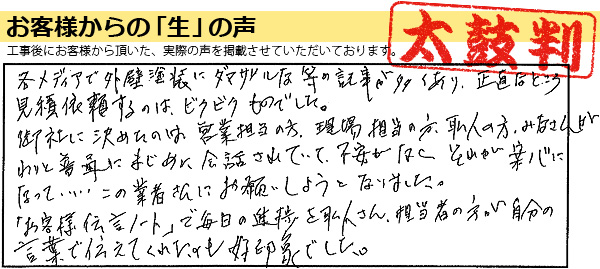 お客様からの「生」の声
工事後にお客様から頂いた、実際の声を掲載させていただいております。
太鼓判
各メディアで外壁塗装にダマサルな等の記事が多くあり、正直なところ
見積依頼するのは、ビクビクものでした。
御社に決めたのは営業担当の方、現場担当の方、職人の方、みなさんが
わりと普通にまじめに会話されていて、不安がなく それが安心に
なって・・・この業者さんにお願いしようとなりました。
「お客様伝言ノート」で毎日の進捗を職人さん、担当者の方が自分の
言葉で伝えてくれたのも好印象でした。